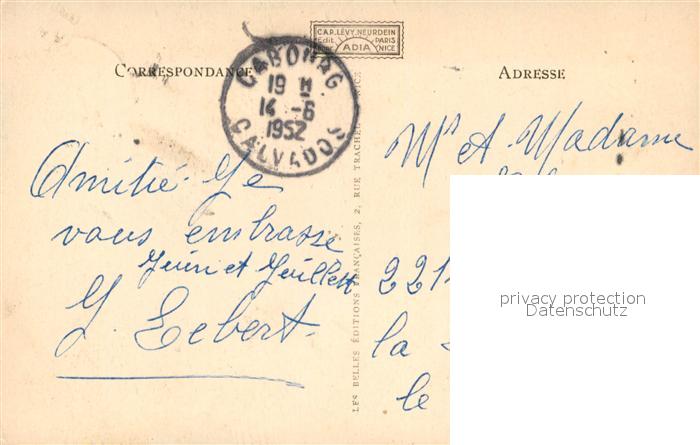 CAP. LÉVY, NEURDEIN
Edit. PARIS
ADIA NICE
CORRESPONDANCE
ADRESSE
CABOURG
19 H
14 -6
1952
CALVADOS
Mr et Madame
Amitié. Je
vous embrasse
Juin et Juillet
221
Y. Lebert
la
le
LES BELLES ÉDITIONS FRANÇAISES, 2, RUE TRACHEL
privacy protection
Datenschutz